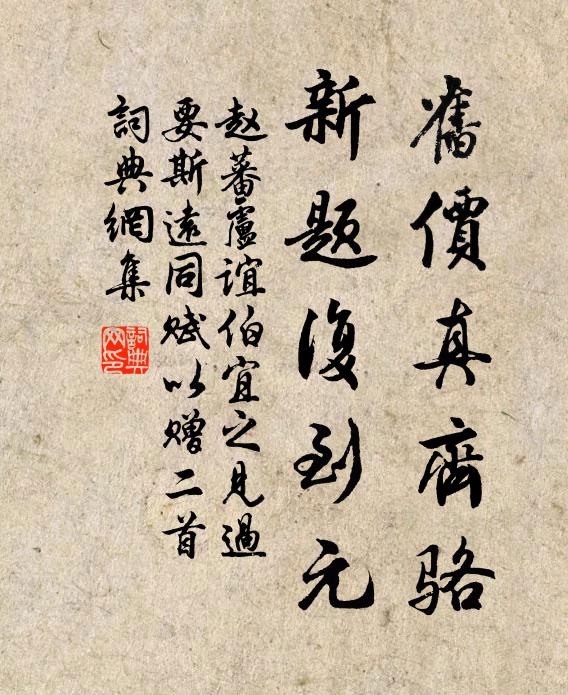 舊價真齊骆
新题復到元
赵蕃盧誼伯宜之見過
要斯遠同赋以赠二首
詞典網集
詞典网印